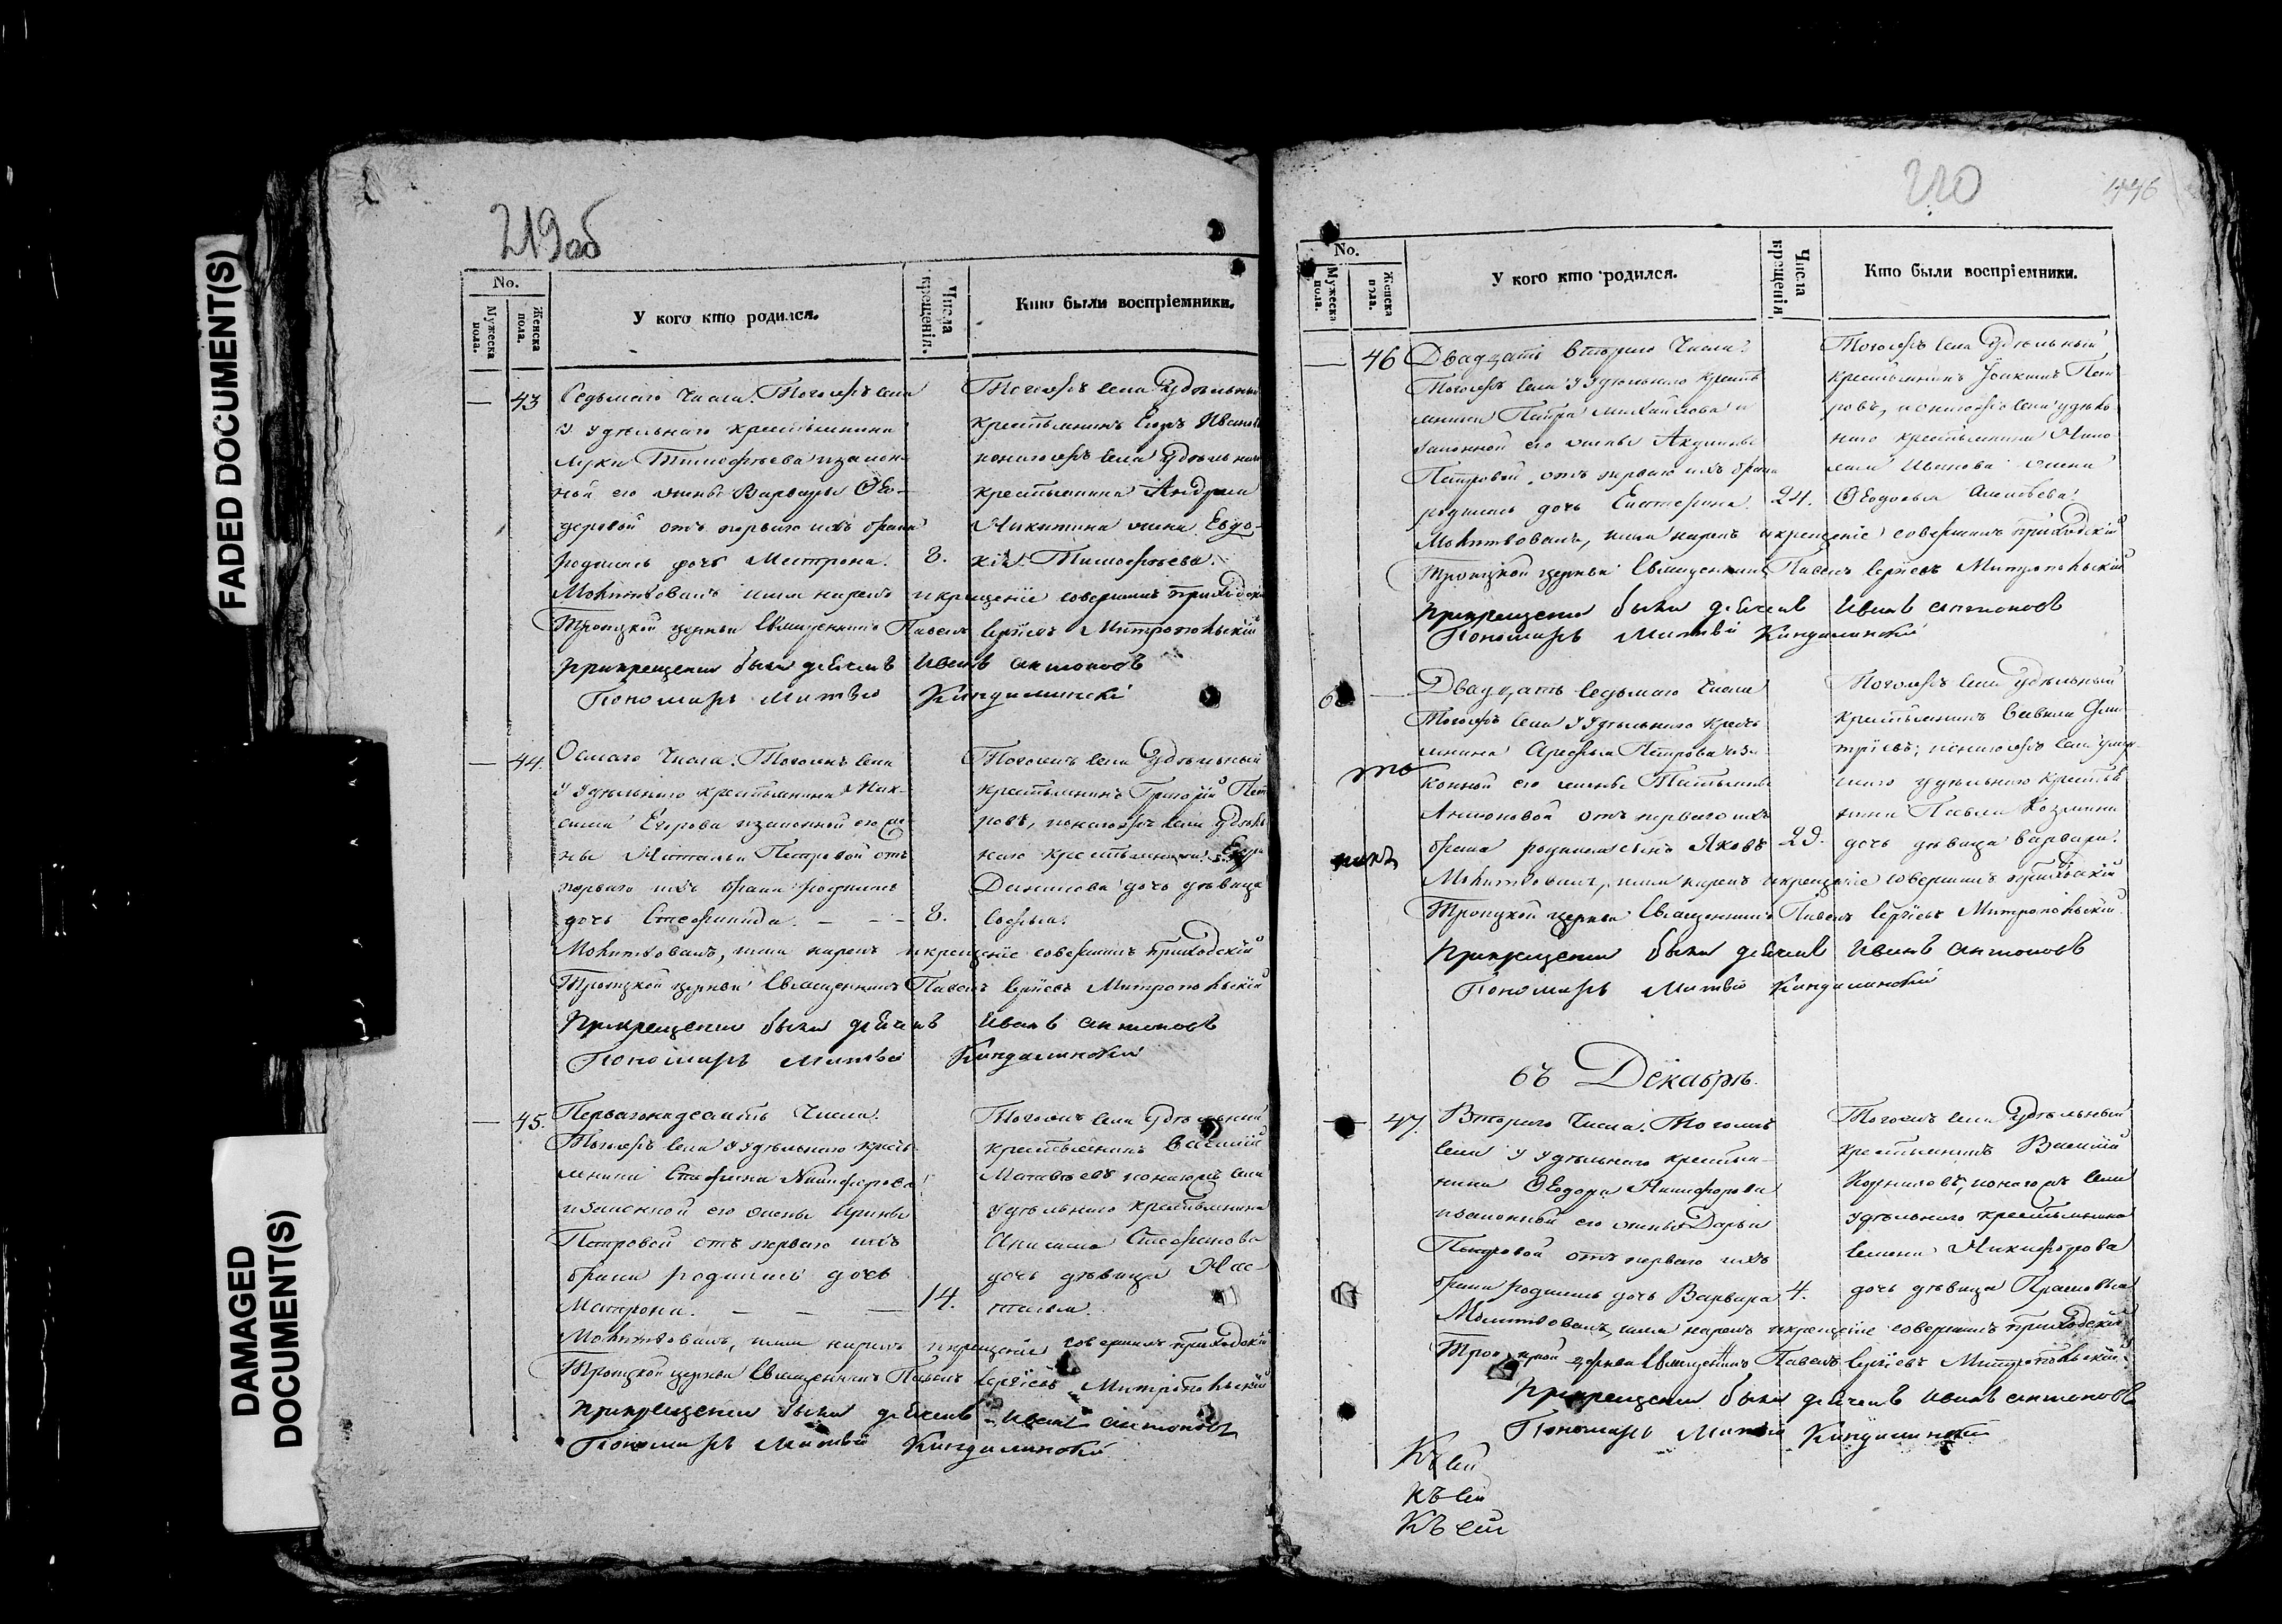 FADED DOCUMENT(S)
DAMAGED
DOCUMENT(S)
219об
No.
Мужеска пола.
Женска пола.
У кого кто родился.
Числа крещенія.
Кто были воспріемники.
— 43
Седьмаго Числа. Тогожъ села
у Удѣльнаго крестьянина
Луки Тимофѣева изакон-
ной его жены Варвары Ѳео-
деровой отъ перваго ихъ брака
родилась дочь Матрона. 8.
Тогожъ села Удѣльный
крестьянинъ Егоръ Ивановъ
итогожъ села Удѣльнаго
крестьянина Андрея
Никитина жена Евдо-
кія Тимофѣева.
Молитвовалъ имя нарекъ икрещеніе совершилъ приходскій
Троицкой церкви Священникъ Павелъ Сергіевъ Митропольскій
Прикрещеніи былъ дьячекъ Иванъ Антоновъ
Пономарь Матвѣй
— 44.
Осмаго Числа. Тогожъ села
У Удѣльнаго крестьянина Мак-
сима Егорова изаконной его же-
ны Натальи Петровой отъ
перваго ихъ брака родилась
дочь Стефанида. — — — 8.
Тогожъ села Удѣльный
крестьянинъ Григорій Пет
ровъ, итогожъ села Удѣль
наго крестьянина
Данилова дочь дѣвица
Софья.
Молитвовалъ, имя нарекъ икрещеніе совершилъ приходскій
Троицкой церкви Священникъ Павелъ Сергіевъ Митропольскій
Прикрещеніи былъ дьячекъ Иванъ Антоновъ
Пономарь Матвѣй
— 45.
Перваго надесять Числа.
Тогожъ села У Удѣльнаго кресть-
янина Стефана Никифорова
изаконной его жены Ирины
Петровой отъ перваго ихъ
брака родилась дочь
Матрона. — — — 14.
Тогожъ села Удѣльный
крестьянинъ Василій
Матвѣевъ итогожъ села
удѣльнаго крестьянина
Анисима Стефанова
дочь дѣвица Нас-
тасья.
Молитвовалъ, имя нарекъ икрещеніе совершилъ приходскій
Троицкой церкви Священникъ Павелъ Сергіевъ Митропольскій
Прикрещеніи былъ дьячекъ Иванъ Антоновъ
Пономарь Матвѣй
220
No.
Мужеска пола.
Женска пола.
У кого кто родился.
Числа крещенія
Кто были воспріемники.
— 46
Двадцать втораго Числа.
Тогожъ села У Удѣльнаго кресть
янина Петра Михайлова и
законной его жены Акулины
Петровой, отъ перваго ихъ брака
родилась дочь Екатерина. 24.
Тогожъ села Удѣльный
крестьянинъ Іоакимъ Пет
ровъ, итогожъ села удѣль
наго крестьянина
Иванова жена
Ѳеодосья
Молитвовалъ, имя нарекъ икрещеніе совершилъ приходскій
Троицкой церкви Священникъ Павелъ Сергіевъ Митропольскій
Прикрещеніи былъ дьячекъ Иванъ Антоновъ
Пономарь Матвѣй
Двадцать седьмаго Числа
Тогожъ села У Удѣльнаго кресть
янина Арефья Петрова иза-
конной его жены Татьяны
Антоновой отъ перваго ихъ
брака родился сынъ Яковъ 29.
Тогожъ села Удѣльный
крестьянинъ Савелій Дми-
тріевъ, итогожъ села
удѣльнаго крестья
нина Павла Козмина
дочь дѣвица Варвара.
Молитвовалъ, имя нарекъ икрещеніе совершилъ приходскій
Троицкой церкви Священникъ Павелъ Сергіевъ Митропольскій.
Прикрещеніи былъ дьячекъ Иванъ Антоновъ
Пономарь Матвѣй
въ Декабрѣ.
— 47.
Втораго Числа. Тогожъ
села у Удѣльнаго крестья-
нина Ѳеодора Никифорова
изаконной его жены Дарьи
Петровой отъ перваго ихъ
брака родилась дочь Варвара 4.
Тогожъ села Удѣльный
крестьянинъ Василій
Корниловъ, итогожъ села
удѣльнаго крестьянина
Семена Никифорова
дочь дѣвица Прасковья
Молитвовалъ, имя нарекъ икрещеніе совершилъ приходскій
Троицкой церкви Священникъ Павелъ Сергіевъ Митропольскій.
Прикрещеніи былъ дьячекъ Иванъ Антоновъ
Пономарь Матвѣй
Къ сей
къ сей
Къ сей